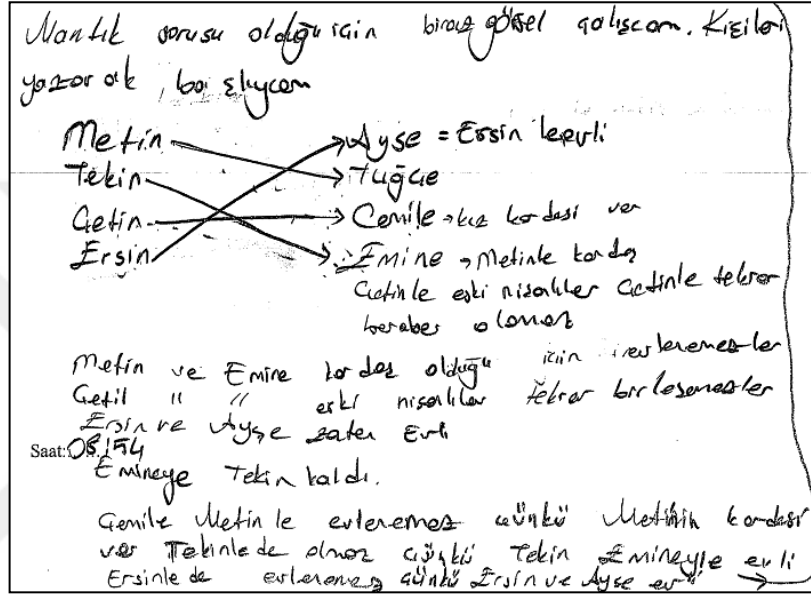 Mantık sorusu olduğu için biraz görsel çalışcam. Kişileri
yazarak, başlıycam
Metin Ayşe = Ersin le evli
Tekin Tuğçe
Çetin Cemile → kız kardeşi var
Ersin Emine → Metinle kardeş
Çetinle eski nişanlılar Çetinle tekrar
beraber olamaz
Metin ve Emine kardeş olduğu için evlenemezler
Çetil " " eski nişanlılar tekrar birleşemezler
Ersin ve Ayşe zaten Evli
Saat:
Emineye Tekin kaldı.
Cemile Metinle evlenemez çünkü Metinin kardeşi
var Tekinlede olmaz çünkü Tekin Emineyle evli
Ersinle de evlenemez çünkü Ersin ve Ayşe evli